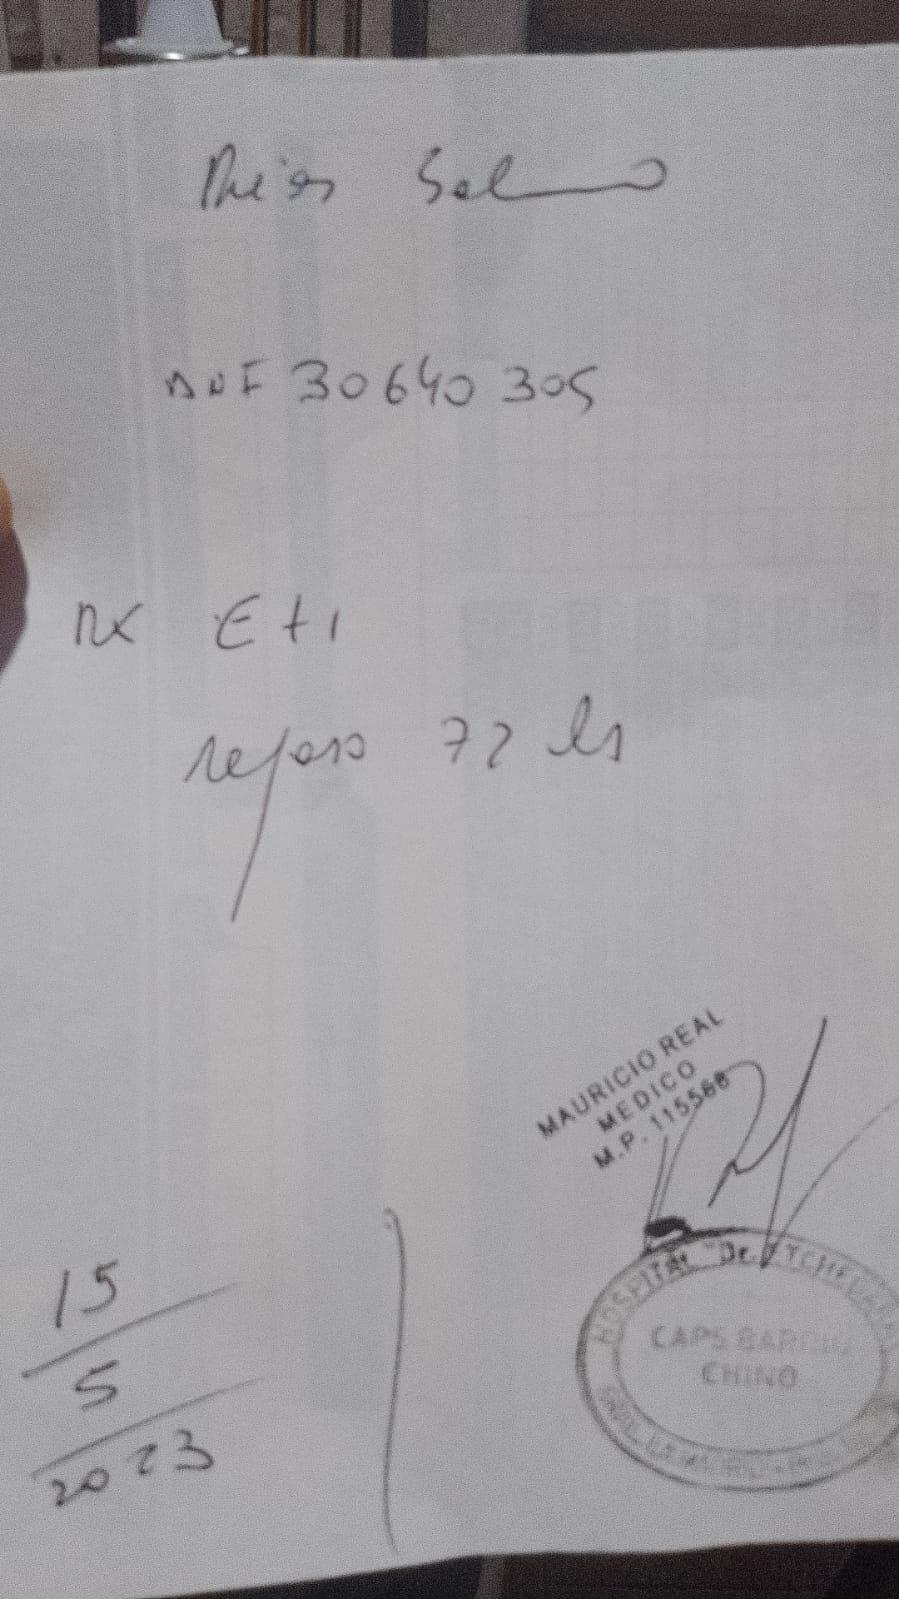 DNI 30640305
Dx ETI
reposo 72 hs
MAURICIO REAL
MEDICO
M.P. 115566
HOSPITAL "Dr.
CAPS BARRIO
CHINO
15
5
2023